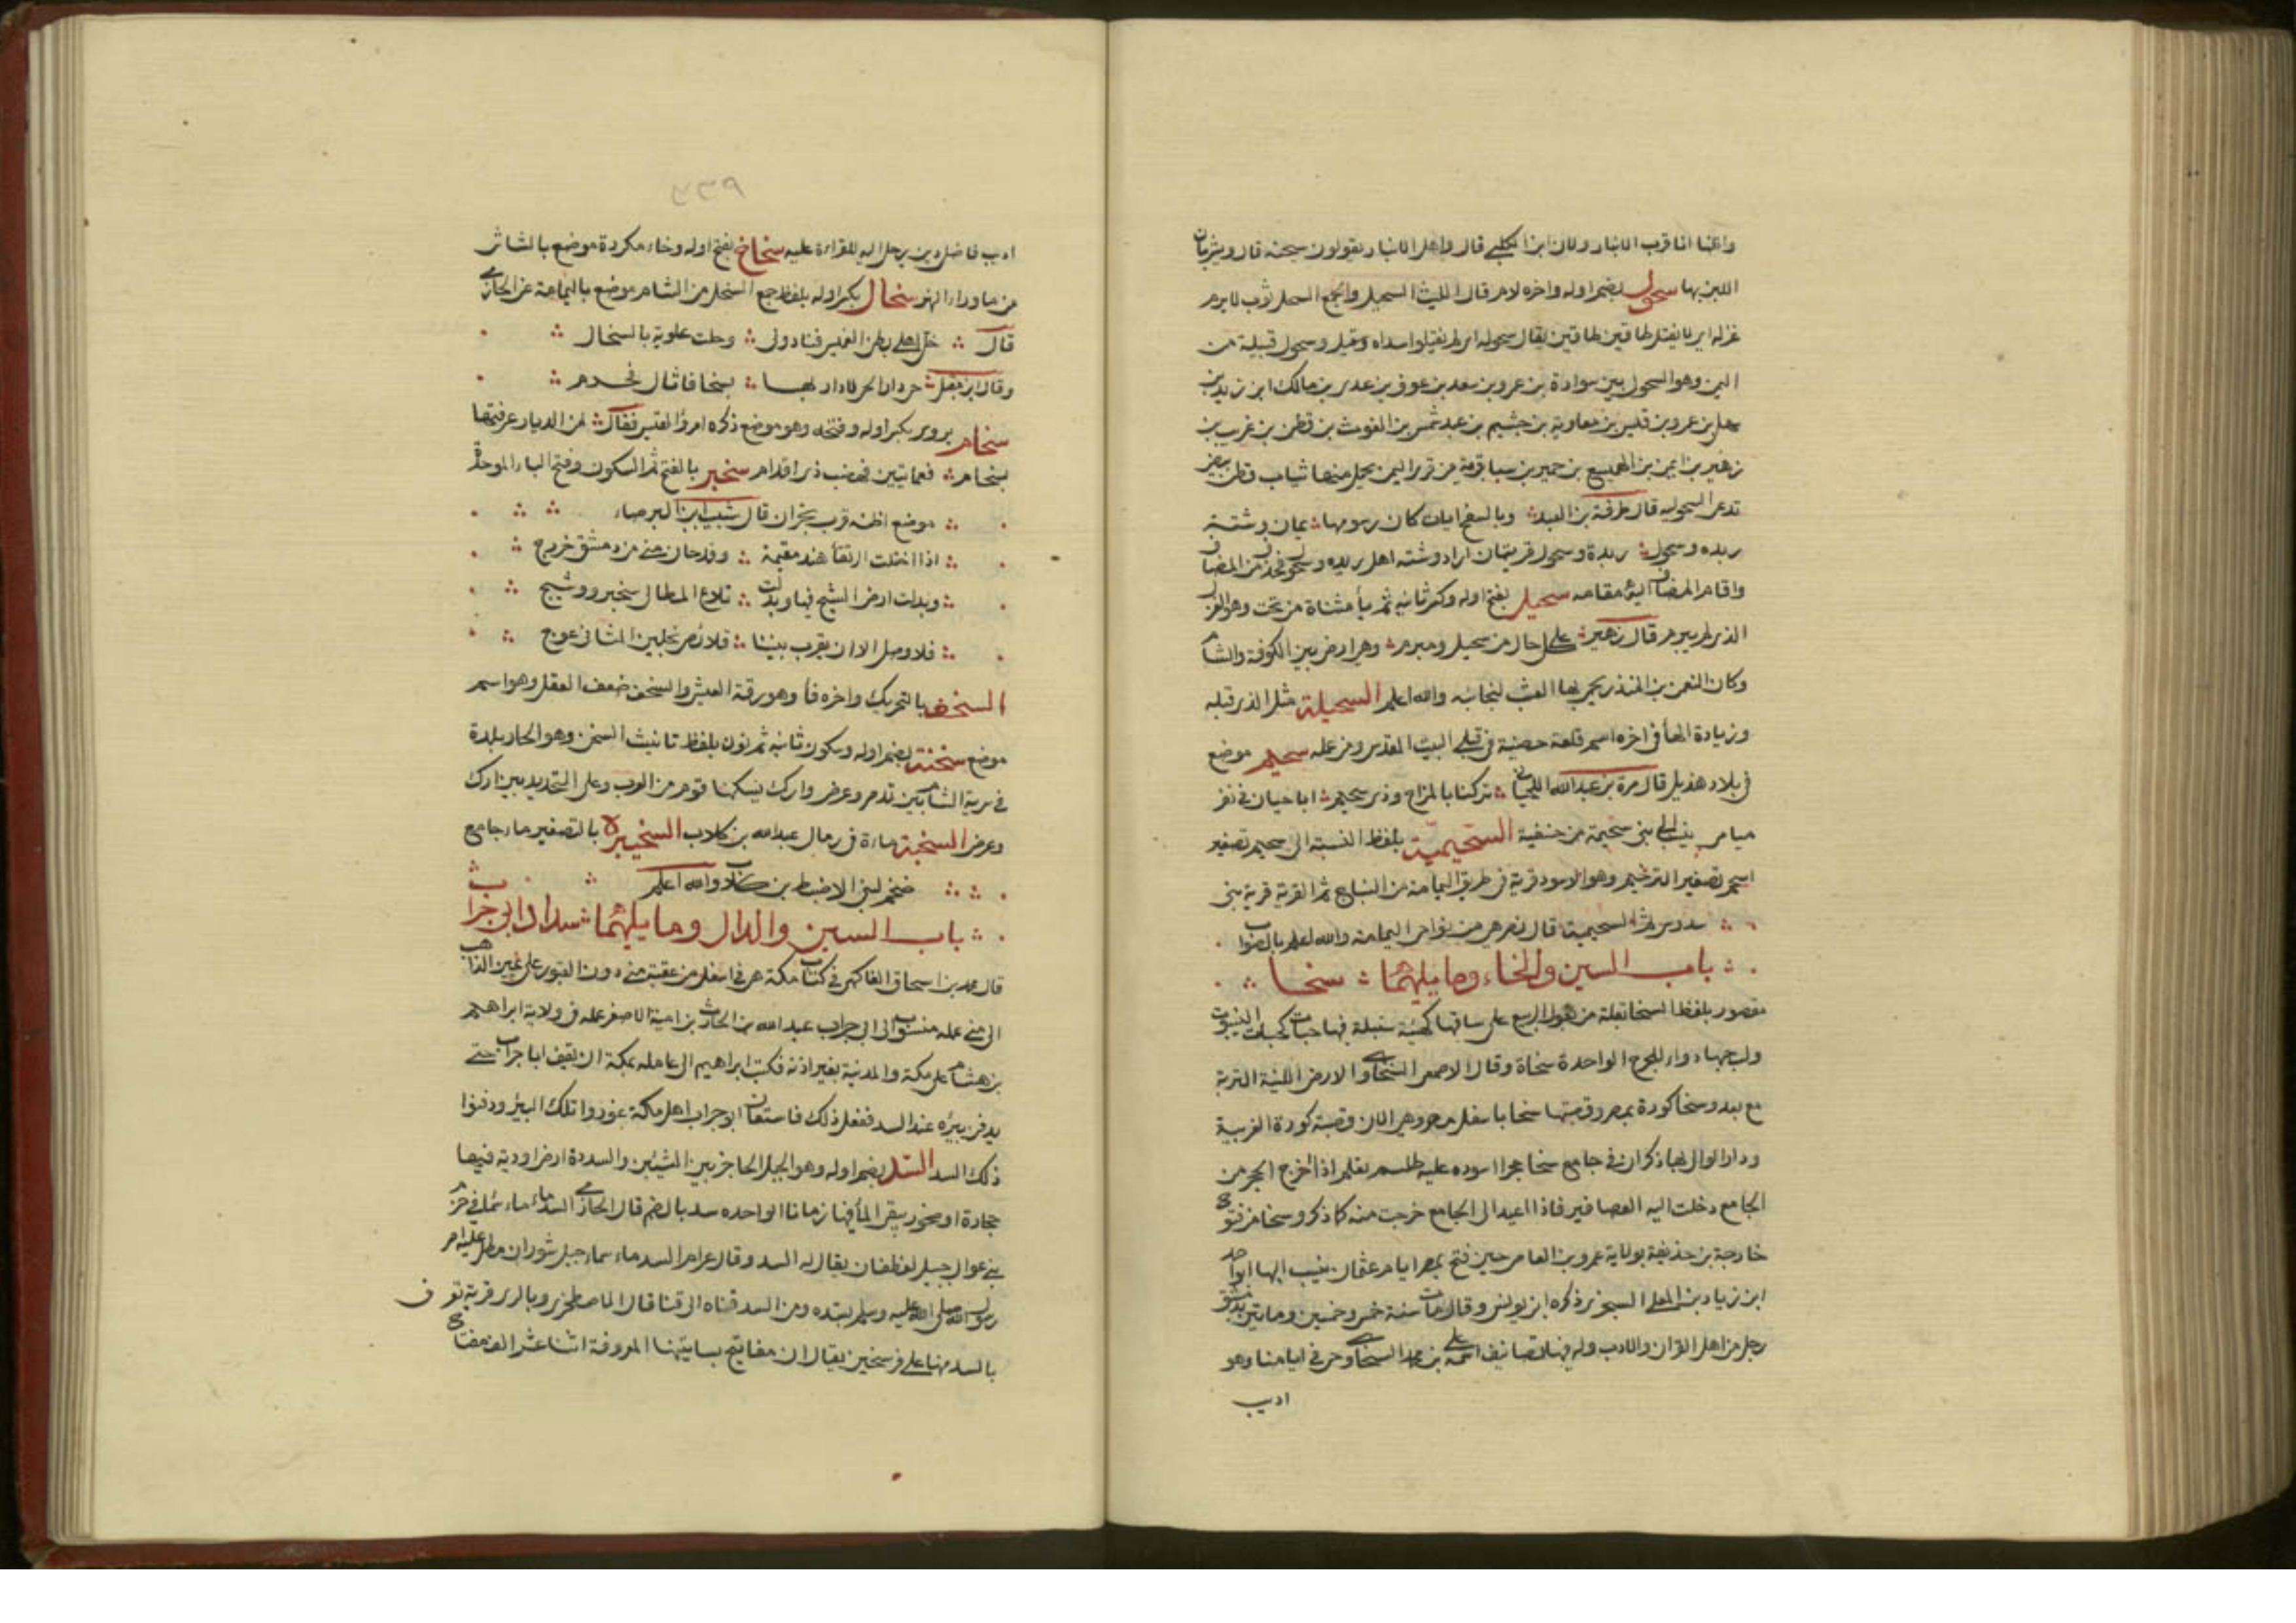 واظنها انها قرب الانبار وقال ابن الكلبي قال واهل الانبار يقولون سحنه قال ويشربان
اللبن بها سحول بضم اوله واخره لام قال الليث السحيل والجمع السحل ثوب لا يبرم
غزله اي لا يفتل طاقين طاقين يقال سحلوه اي لم يفتلوا سداه وقيل وسحول قبيلة من
اليمن وهو السحول بين سوادة بن عمرو بن سعد بن عوف بن عدي بن مالك ابن زيد بن
سهل بن عمرو بن قيس بن معاوية بن جشيم بن عبد شمس بن الغوث بن قطن بن غريب بن
زهير بن ايمن بن الهميسع بن حمير بن سبا قرية من قرى اليمن يحمل منها ثياب قطن بيض
تدعى السحوليه قال طرفة بن العبد وبالسفح ايات كان رسومها يمان وشته
ريده وسحول ريدة وسحول قريتان اراد وشته اهل ريده وسحول فحذف المضاف
واقام المضاف اليه مقامه سحيل بفتح اوله وكسر ثانيه ثم يا مثناة من تحت وهو الغزل
الذي لم يبرم قال زهير على كل حال من سحيل ومبرم وهي ارض بين الكوفة والشام
وكان النعمن بن المنذر يحمي بها العشب لنجائبه والله اعلم السحيلة مثل الذي قبله
وزيادة الهاء في اخره اسم قلعة حصينة في قبلي البيت المقدس ومن عمله سحيم موضع
في بلاد هذيل قال مرة بن عبد الله اللحياني تركنا بالمزاح وذي سحيم ابا حيان في نفر
ميامى ينتسب الى بني سحيمة من حنفية السحيمية بلفظ النسبة الى سحيم تصغير
اسحم تصغير الترخيم وهو الاسود قرية في طريق اليمامة من النباج ثم القرية قرية بني
سدوس ثم السحيمية قال نصر هي من نواحي اليمامة والله اعلم بالصواب
باب السين والخاء وما يليهما سخا
مقصور بلفظ السخا بقلة من بقول الربيع على ساقها كهيئة سنبلة فيها حبات كحبات الينبوت
ولب حبها دواء للجرح الواحدة سخاة وقال الاصمعي السخاوي الارض اللينة التربة
مع بعد وسخا كورة بمصر وقصبتها سخا باسفل مصر وهي الان قصبة كورة الغربية
ودار الوالي بها ذكر ان في جامع سخا حجرا اسوده عليه طلسم بقلم اذا اخرج الحجر من
الجامع دخلت اليه العصافير فاذا اعيد الى الجامع خرجت منه كما ذكر وسخا من فتوح
خارجة بن حذيفة بولاية عمرو بن العاص حين فتح مصر ايام عثمان ينسب اليها ابو احمد
ابن زياد بن المعلى السخوي ذكره ابن يونس وقال مات سنة خمس وخمسين ومايتين بدمشق
رجل من اهل القران والادب وله فيها تصانيف اسمه علي بن محمد السخاوي حي في ايامنا وهو
اديب
٢٣٩
اديب فاضل دين يرحل اليه للقراءة عليه سخاخ بفتح اوله وخاء مكررة موضع بالشاش
من ما وراء النهر سخال بكسر اوله بلفظ جمع السخل من الشاء موضع باليمامة عن الحازمي
قال حل اهلي بطن الغميس فبادولى وحلت علوية بالسخال
وقال ابن مقبل حي دار الحي لا دار بها بسخال فاثال فخدم
سخام يروى بكسر اوله وفتحه وهو موضع ذكره امرؤ القيس فقال لمن الديار عرفتها
بسخام فعمايتين فهضب ذي اقدام سخبر بالفتح ثم السكون وفتح الباء الموحدة
موضع اظنه قرب نجران قال شبيب ابن البرصاء
اذا احتلت الرنقاء هند مقيمة وقد حان مني من دمشق خروج
وبدلت ارض الشيح فيها وبدلت تلاع المطالي سخبر ووشيج
فلا وصل الا ان يقرب بيننا قلائص يجذبن المثاني عوج
السخف بالتحريك واخره فا وهو رقة العيش والسخف ضعف العقل وهو اسم
موضع سخنة بضم اوله وسكون ثانيه ثم نون بلفظ تانيث السخن وهو الحار بلدة
في برية الشام بين تدمر وعرض وارك يسكنها قوم من العرب وعلى التحديد بين ارك
وعرض السخنة ماءة في رمال عبد الله بن كلاب السخيبرة بالتصغير ماء جامع
ضخم لبني الاضبط بن كلاب والله اعلم
باب السين والدال وما يليهما سداد ابي جراب
قال محمد بن اسحاق الفاكهي في كتاب مكة هي في اسفل من عقبة منى دون القبور على يمين الذاهب
الى منى عمله منسوب الى ابي جراب عبد الله بن الحارث بن امية الاصغر عمله في ولاية ابراهيم
بن هشام على مكة والمدينة بغير اذنه فكتب ابراهيم الى عامله بمكة ان يقف ابا جراب حتى
يدفن بيره عند السد ففعل ذلك فاستعان ابو جراب اهل مكة عوروا تلك البير ودفنوا
ذلك السد السد بضم اوله وهو الجبل الحاجز بين الشيئين والسددة ارض اودية فيها
حجارة او صخور يبقى الماء فيها زمانا الواحده سد بالضم قال الحازمي السد ماء سماء في حزم
بني عوال جبيل لغطفان يقال له السد وقال عرام السد ماء سماء جبل شوران مطل عليه امر
رسول الله صلى الله عليه وسلم بسده ومن السد قناه الى قبا قال الاصطخري وبالري قرية تعرف
بالسد منها على فرسخين يقال ان مفاتيح بساتينها المعروفة اثنا عشر الف مفتاح